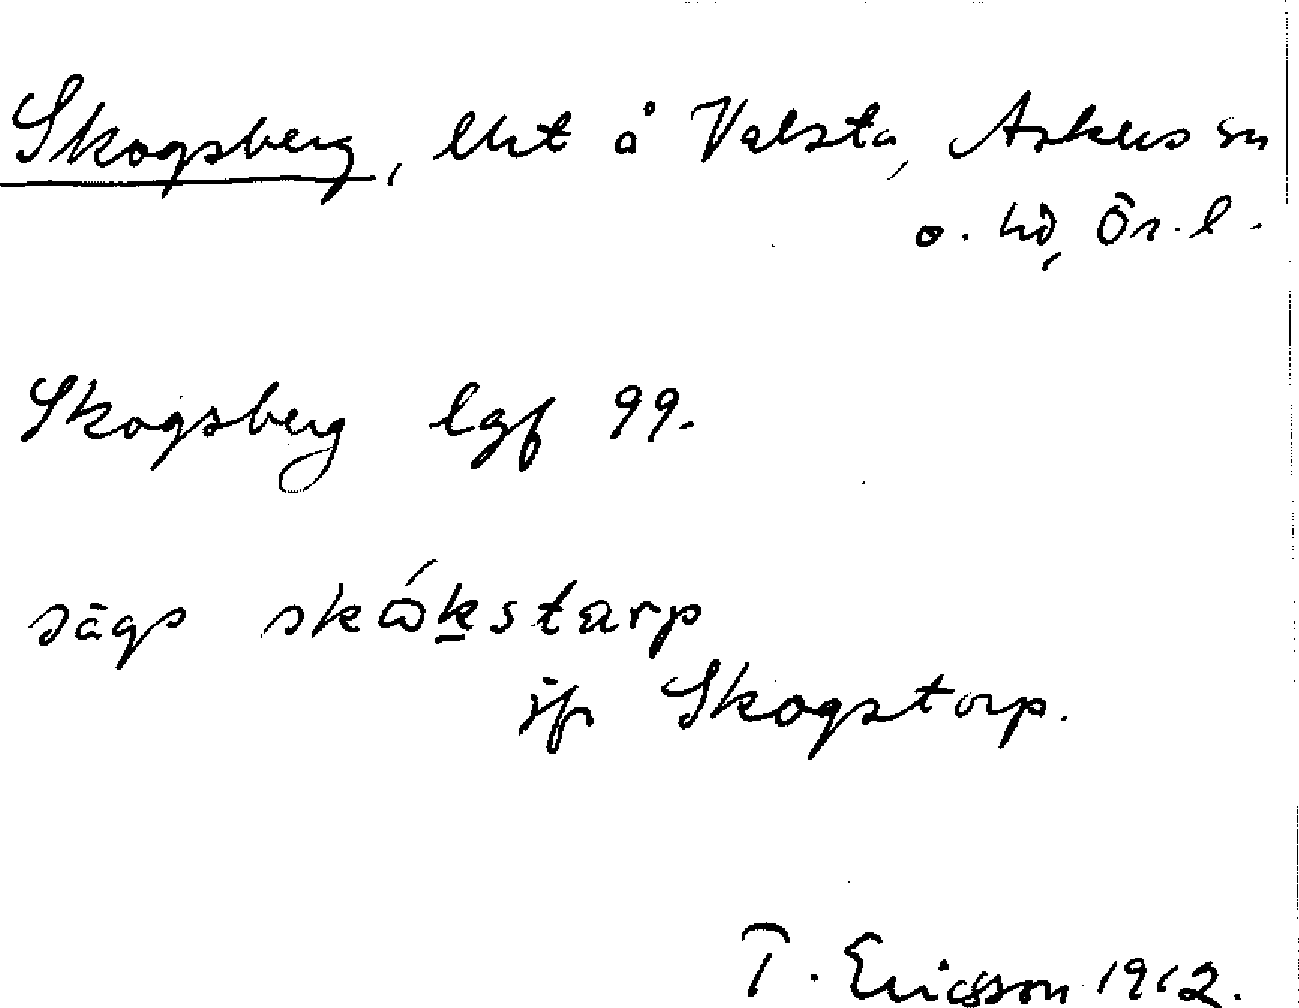 Skogsberg, lht å Valsta, Askers sn
o. hd, Ör. l.
Skogsberg lgf 99.
sägs skɷ́kstarp
jfr Skogstorp.
T. Ericsson 1912.